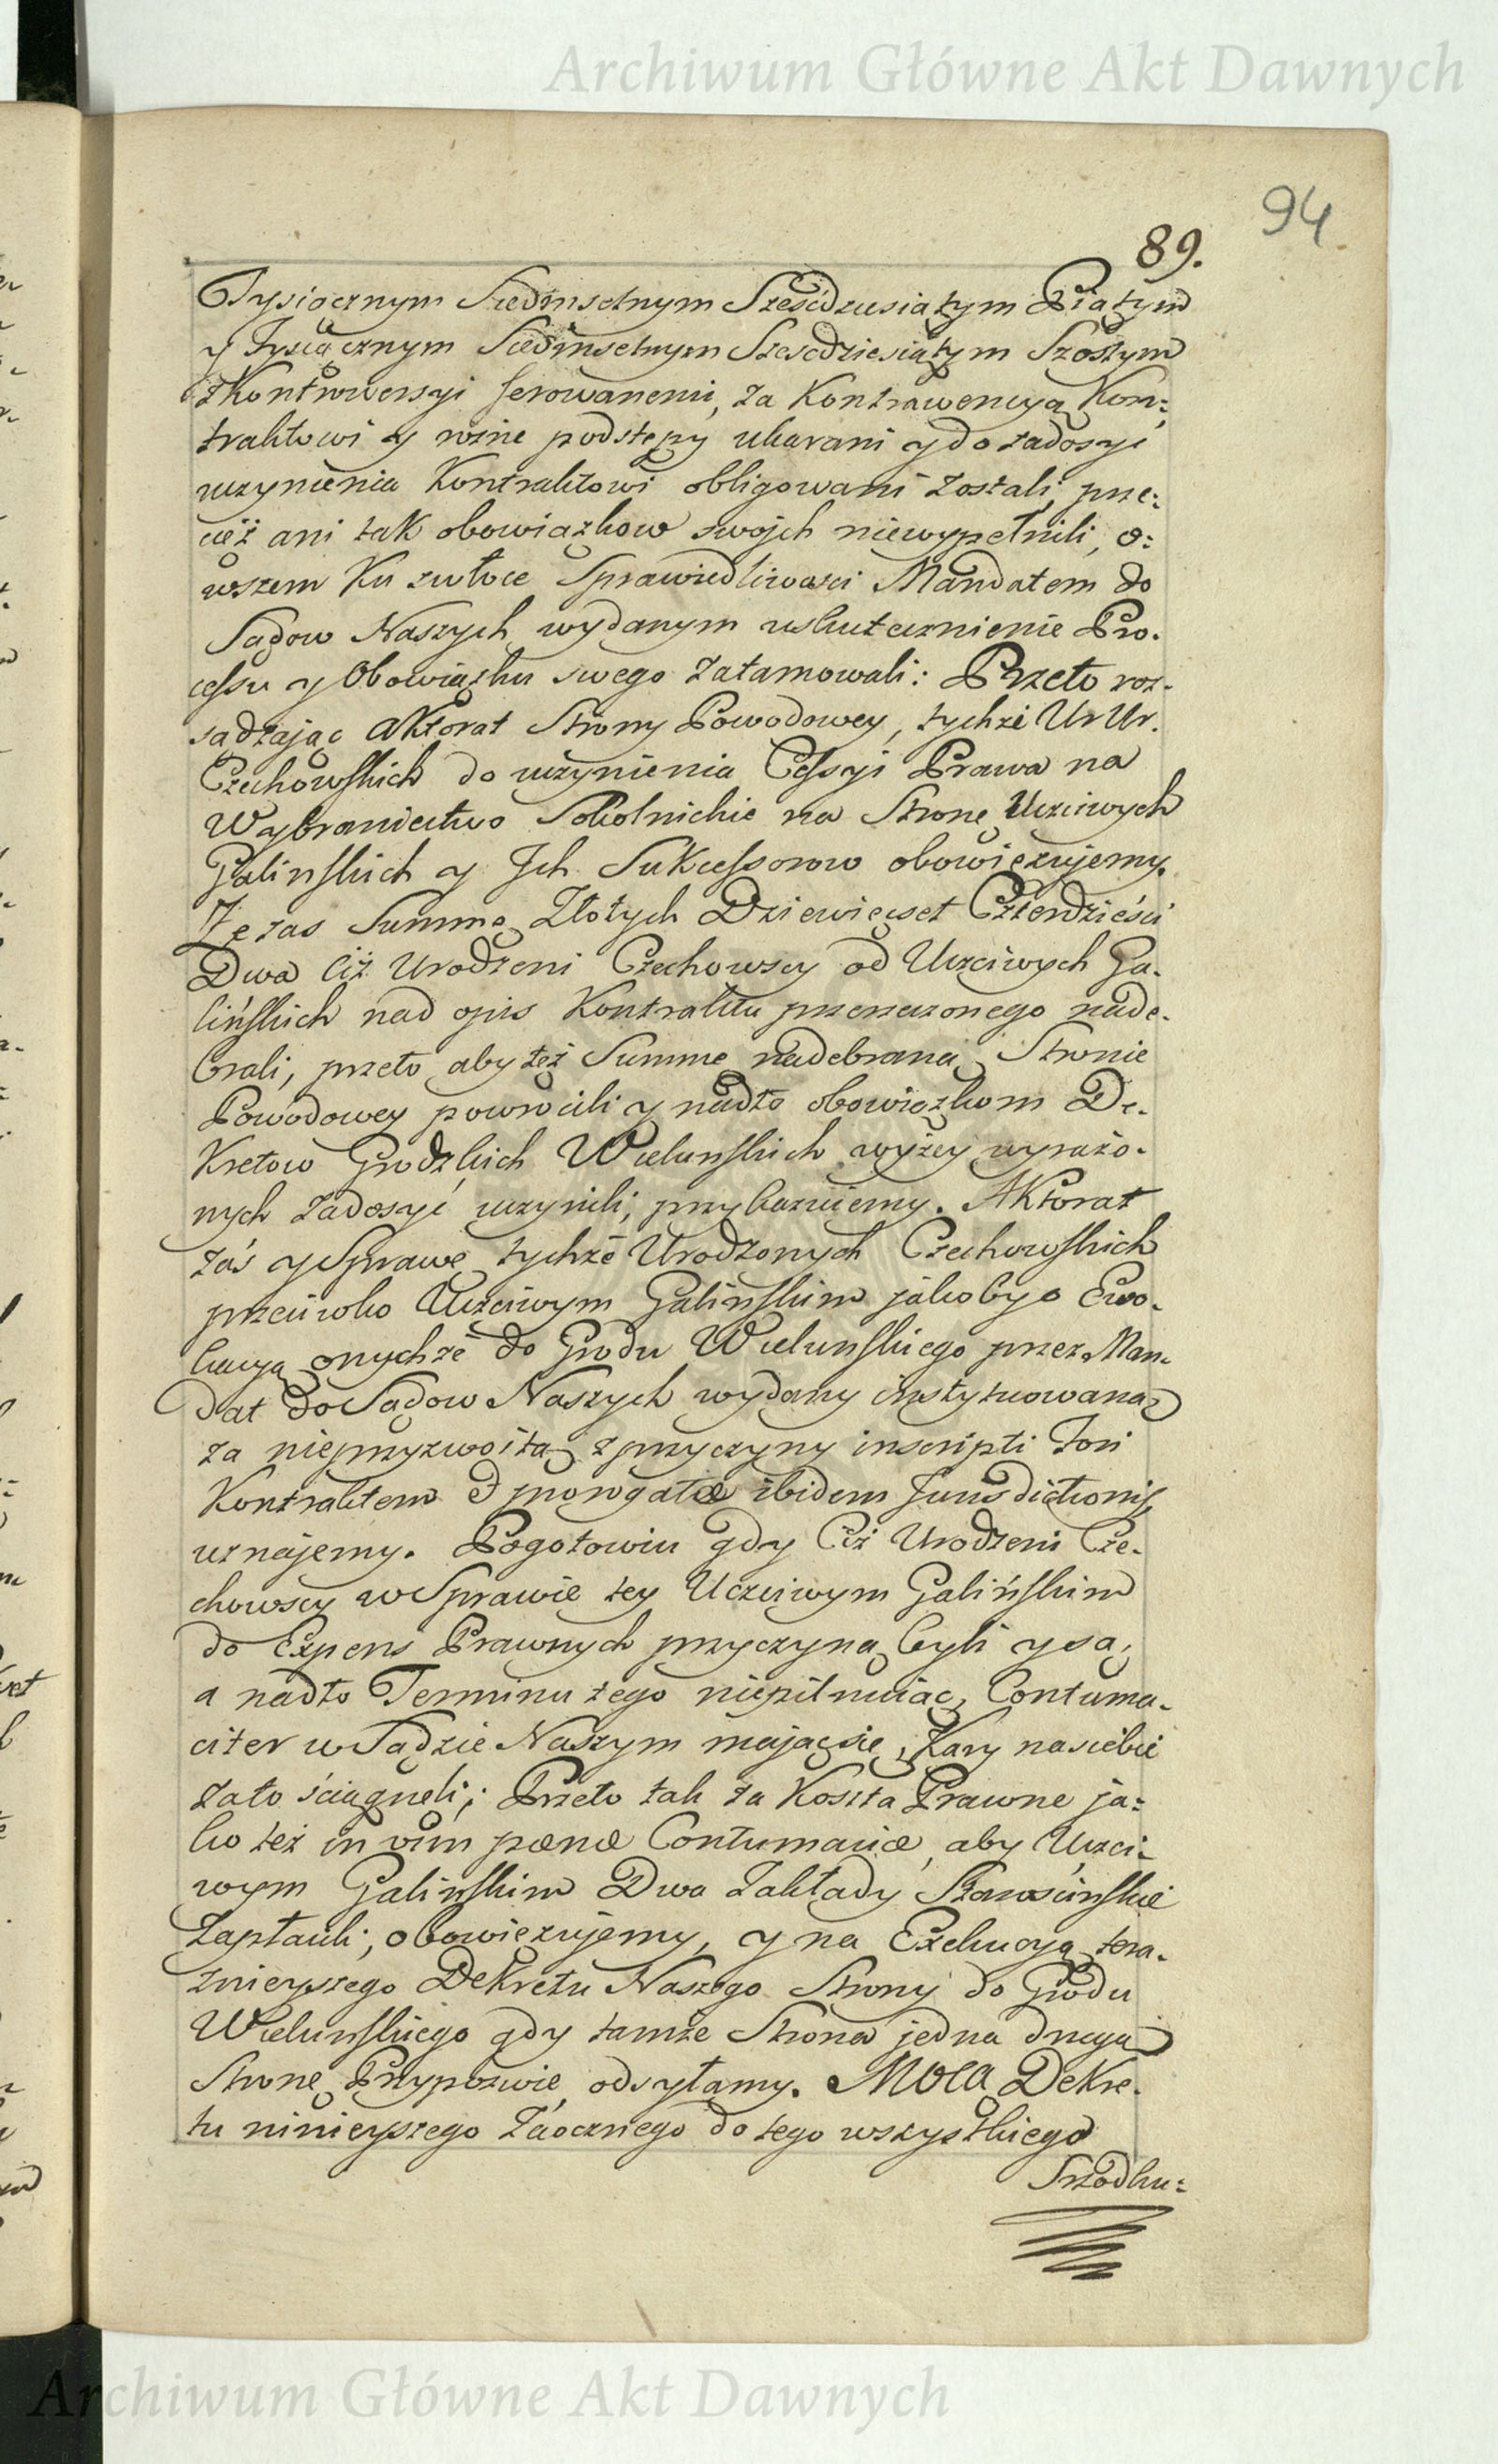 Archiwum Główne Akt Dawnych
94
89.
Tysiącznym Siedmsetnym Sześćdziesiątym Piątym
y Tysiącznym Siedmsetnym Sześcdziesiątym Szostym
z Kontrowersyi ferowanemi, za Kontrawencyą Kon:
traktowi y rożne podstępy ukarani y do zadosyć
uczynienia Kontraktowi obligowani zostali, prze:
cięż ani tak obowiązkow swojch niewypełnili, o:
wszem Ku zwłoce Sprawiedliwosci Mandatem do
Sądow Naszych wydanym uskutecznienie Pro.
cessu y Obowiązku swego zatamowali: Przeto roz-
sądzając aktorat Strony Powodowey, tychże Ur Ur.
Czechowskich do uczynienia Cessyi Prawa na
Wybraniectwo Sokolnickie na Stronę Uczciwych
Galinskich y Jch Sukcessorow obowięzujemy.
Ze zas Summę Złotych Dziewięcset Czterdzieści
Dwa Ciż Urodzeni Czechowscy od Uczciwych Ga-
lińskich nad opis Kontraktu przerzeczonego nade-
brali, przeto aby też Summę nadebraną Stronie
Powodowey powrocili y nadto obowiązkom De-
Kretow Grodzkich Wielunskich wyżey wyrażo-
nych zadosyć uczynili, przykazuiemy. Aktorat
zaś y Sprawę tychże Urodzonych Czechowskich
przeciwko Uczciwym Galinskim jakoby o Ewo-
kacyą onychże do Grodu Wielunskiego przez Man-
dat do Sądow Naszych wydany instytuowaną
za nieprzyzwoitą z przyczyny inscripti Fori
Kontraktem & prorogatæ ibidem Jurisdictionis,
uznajemy. Pogotowiu gdy Ciż Urodzeni Cze-
chowscy w Sprawie tey Uczciwym Galińskim
do Expens Prawnych przyczyną byli y są,
a nadto Terminu tego niepilnuiąc, Contuma-
citer w Sądzie Naszym mając się, Kary na siebie
zato ściągneli; Przeto tak za Koszta Prawne ja:
ko też in vim pænæ Contumaciæ, aby Uczci-
wym Galinskim Dwa Zakłady Starościnskie
zapłacili, obowięzujemy, y na Exekucyą tera-
znieyszego Dekretu Naszego Strony do Grodu
Wielunskiego gdy tamże Strona jedna drugą
Stronę Przypozwie, odsyłamy. Mocą Dekre-
tu ninieyszego Zaocznego do tego wszystkiego
Srzodku:
Archiwum Główne Akt Dawnych